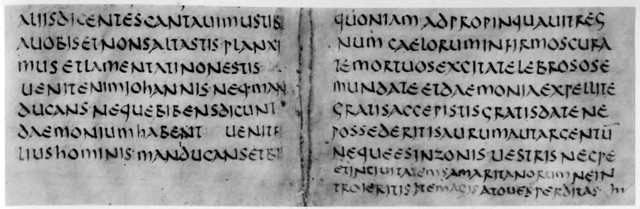 ALIISDICENTESCANTAUIMUSTIB
AUOBISETNONSALTASTISPLANXI
MUSETLAMENTATINONESTIS
UENITENIMIOHANNISNEQ·MAN
DUCANSNEQUEBIBENSDICUNT
DAEMONIUMHABENT UENITFI
LIUSHOMINISMANDUCANSETBI
QUONIAMADPROPINQUAUITREG
NUMCAELORUMINFIRMOSCURA
TEMORTUOSEXCITATELEBROSOSE
MUNDATEETDAEMONIAEXPELLITE
GRATISACCEPISTISGRATISDATENE
POSSEDERITISAURUMAUTARGENTŪ
NEQUEESINZONISUESTRISNECPE
ETINCIUITATEMSAMARITANORUMNEIN
TROIERITIS ITEMAGISATOUESPERDITAS